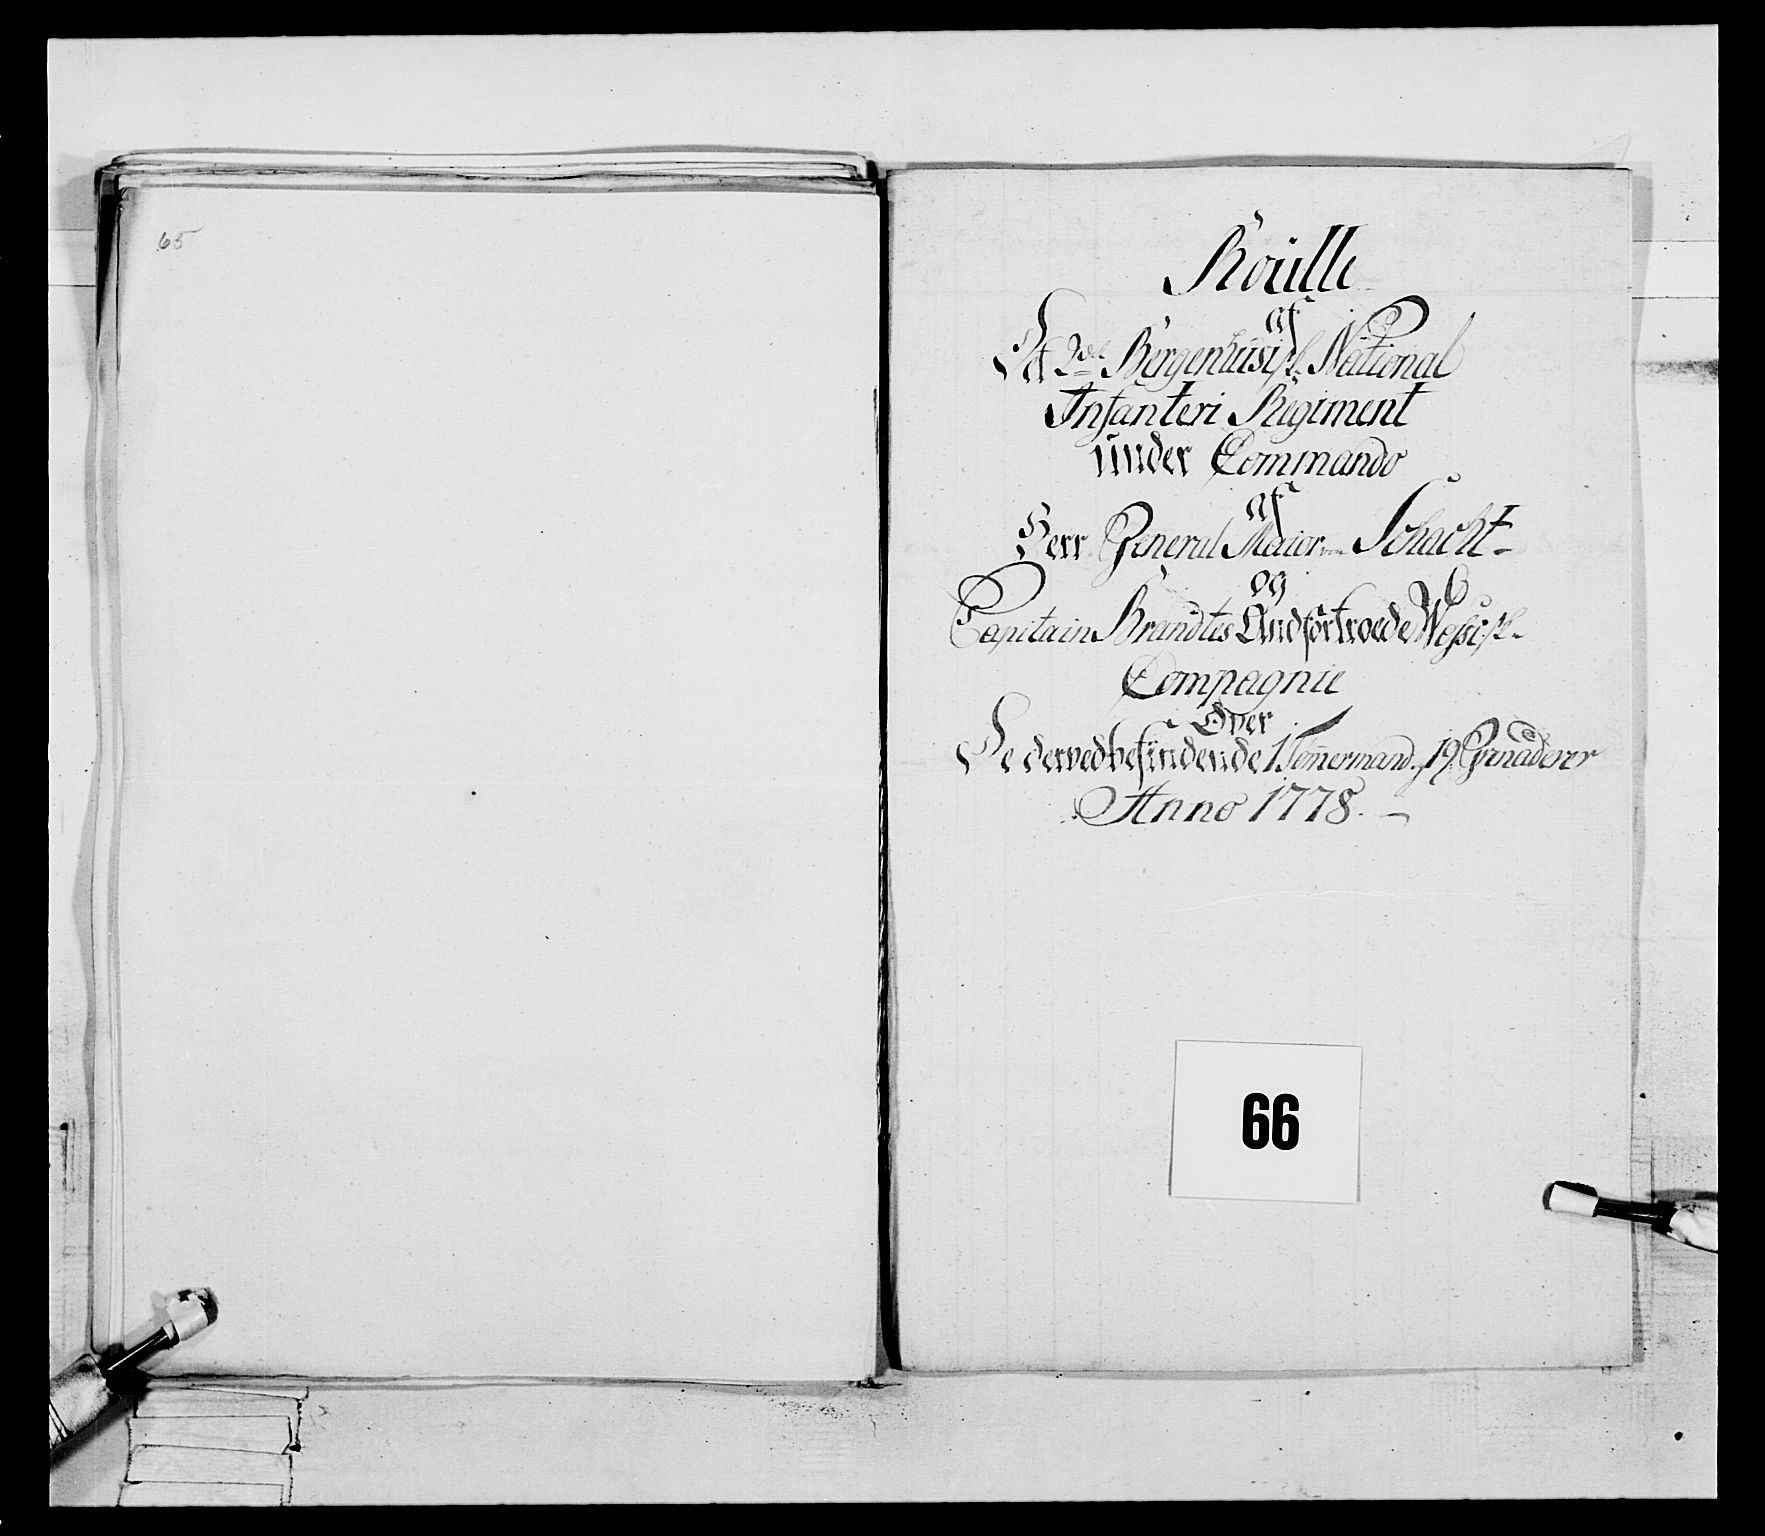 65
Roülle
af
Det 2det Bergenhüsisk. National
Infanteri Regiment
ünder Commando
af
Herr General Maior von Schacht
og
Capitain Brandtes Andfortroede Wossisk.
Compagnie
Over
De derved befindende 1 Tømermand og 19 Grenaderer
Anno 1778.
66